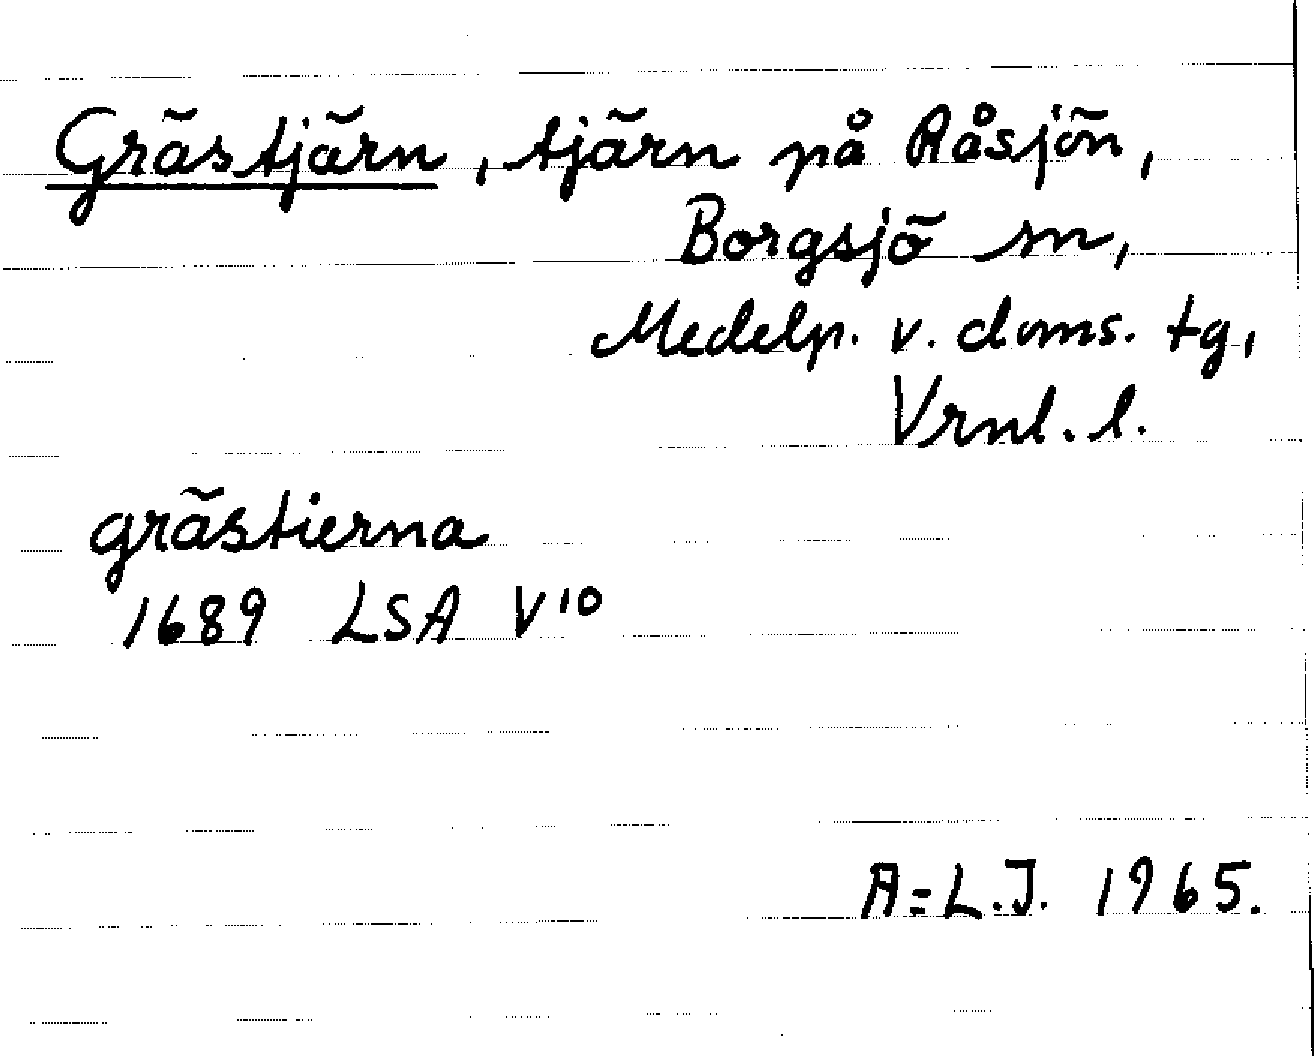 Grästjärn, tjärn på Råsjön,
Borgsjö sn,
Medelp. v. doms. tg,
Vrnl. l.
grästierna
1689 LSA V10
A=L.J. 1965.